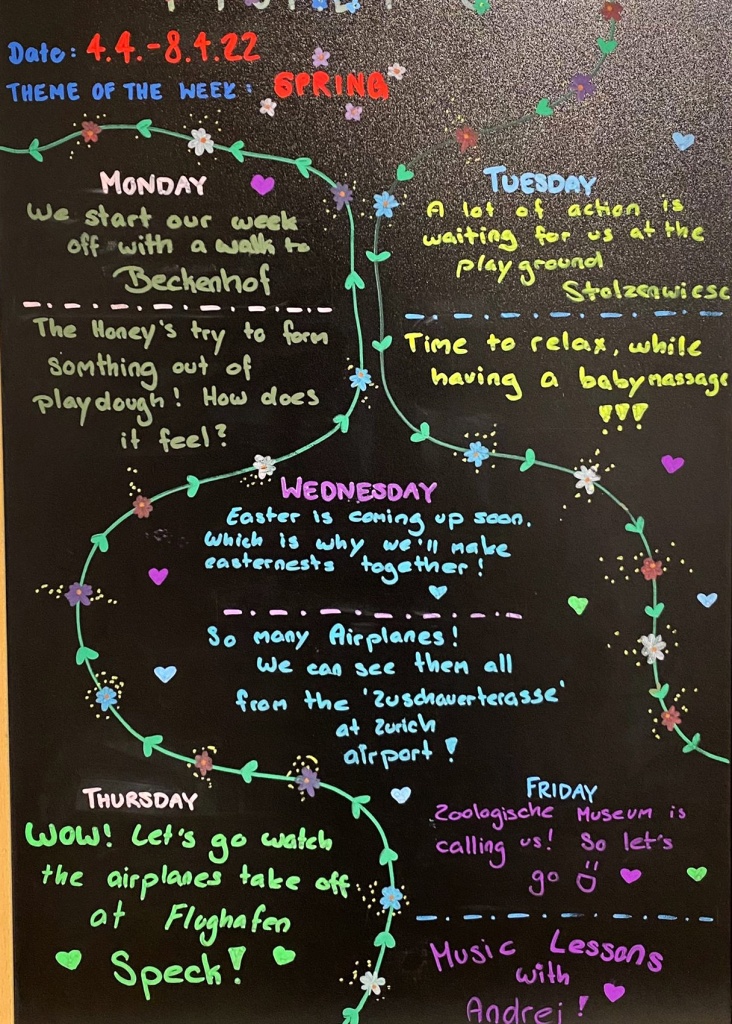 Date: 4.4.-8.4.22
THEME OF THE WEEK: SPRING
MONDAY
We start our week
off with a walk to
Beckenhof
The Honey's try to form
somthing out of
playdough! How does
it feel?
TUESDAY
A lot of action is
waiting for us at the
playground
Stolzenwiese
Time to relax, while
having a babymassage
!!!
WEDNESDAY
Easter is coming up soon.
Which is why we'll make
easternests together!
So many Airplanes!
We can see them all
from the 'Zuschauerterasse'
at Zurich
airport!
THURSDAY
WOW! Let's go watch
the airplanes take off
at Flughafen
Speck!
FRIDAY
Zoologische Museum is
calling us! So let's
go
Music Lessons
with
Andrej!